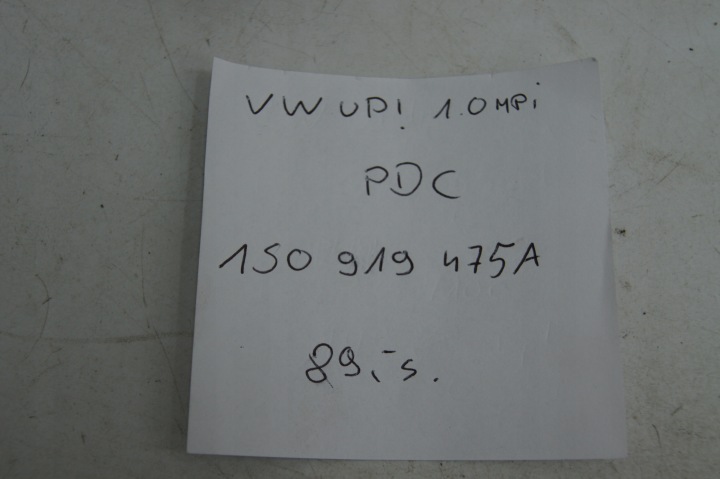 VW UP! 1.0 MPi
PDC
1S0 919 475A
89,-s.